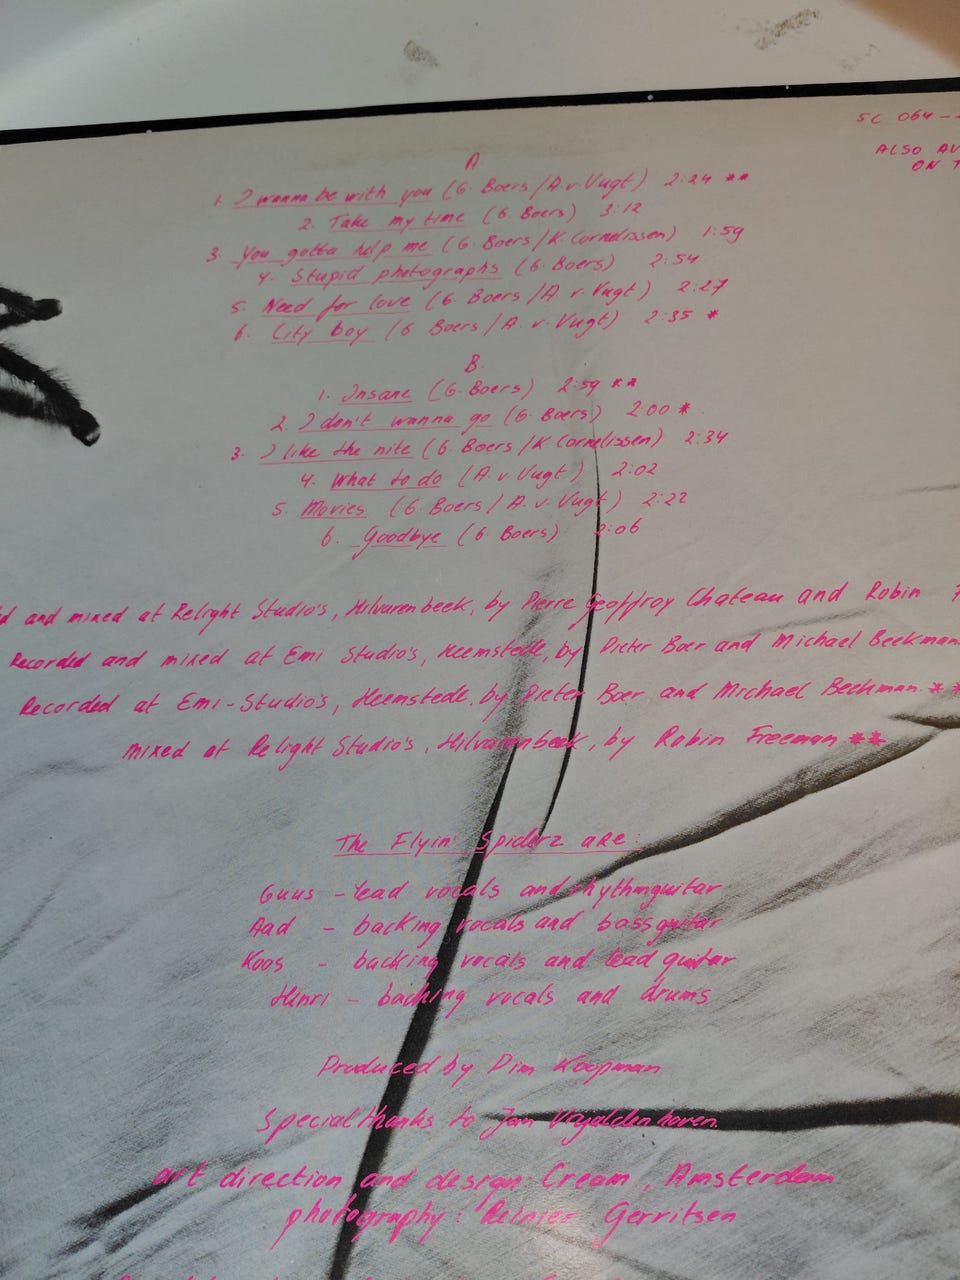 5C 064--
ALSO AV
ON T
A
1. I wanna be with you (G. Boers/A.v.Vugt) 2:24 **
2. Take my time (G. Boers) 3:12
3. You gotta help me (G. Boers/K.Cornelissen) 1:59
4. Stupid photographs (G. Boers) 2:54
5. Need for love (G. Boers/A.v.Vugt) 2:27
6. City boy (G Boers/A.v.Vugt) 2:35 *
B.
1. Insane (G.Boers) 2:59 **
2. I don't wanna go (G.Boers) 2:00 *
3. I like the nite (G.Boers/K Cornelissen) 2:34
4. What to do (A.v.Vugt) 2:02
5. Movies (G.Boers/A.v.Vugt) 2:22
6. Goodbye (G.Boers) 2:06
d and mixed at Relight Studio's, Hilvarenbeek, by Pierre Geoffroy Chateau and Robin F
Recorded and mixed at Emi Studio's, Heemstede, by Pieter Boer and Michael Beekman
Recorded at Emi-Studio's, Heemstede, by Pieter Boer and Michael Beekman **
mixed at Relight Studio's, Hilvarenbeek, by Robin Freeman **
The Flyin' Spiderz are:
Guus - lead vocals and rhythmguitar
Aad - backing vocals and bassguitar
Koos - backing vocals and lead guitar
Henri - backing vocals and drums
Produced by Pim Koopman
Special thanks to Jan
art direction and design: Cream, Amsterdam
photography: Reinier Gerritsen